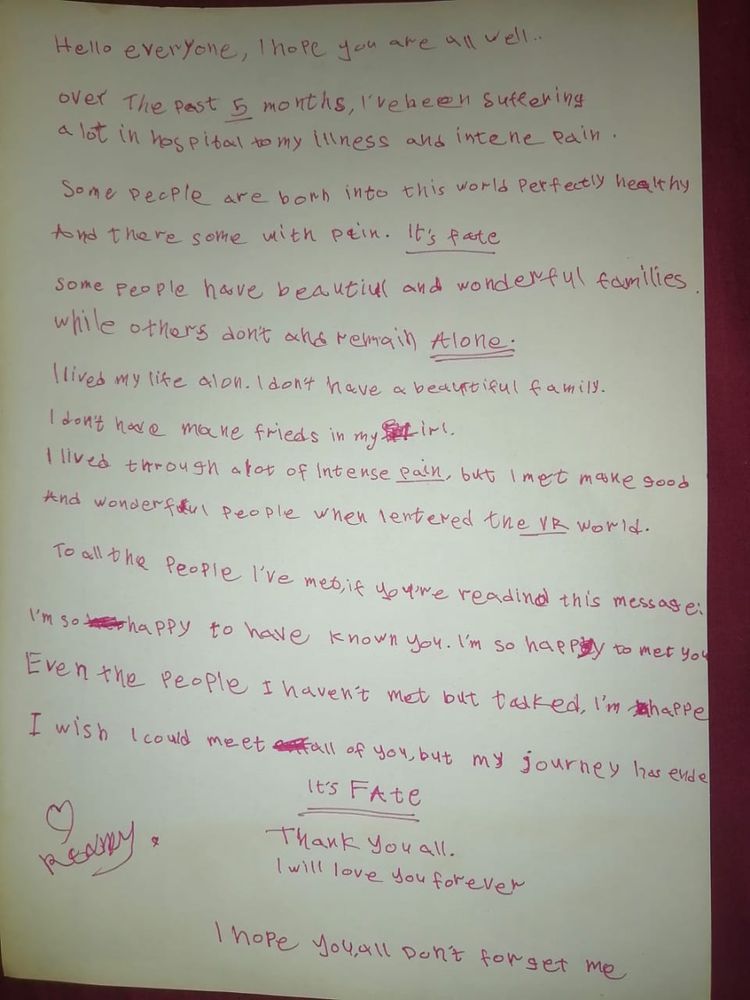 Hello everyone, I hope you are all well..
over The past 5 months, I've been suffering
a lot in hospital to my illness and intene pain.
Some people are born into this world perfectly healthy
And there some with pain. It's fate
some people have beautiul and wonderful families.
while others don't and remain Alone.
I lived my life alon. I don't have a beautiful family.
I don't have mane frieds in my irl.
I lived through alot of Intense pain, but I met make good
And wonderful people when I entered the VR world.
To all the people I've met, if you're readind this message:
I'm so happy to have known you. I'm so happy to met you
Even the people I haven't met but talked, I'm happe
I wish I could meet all of you, but my journey has ende
It's FAte
Thank you all.
I will love you forever
I hope you, all Don't forget me